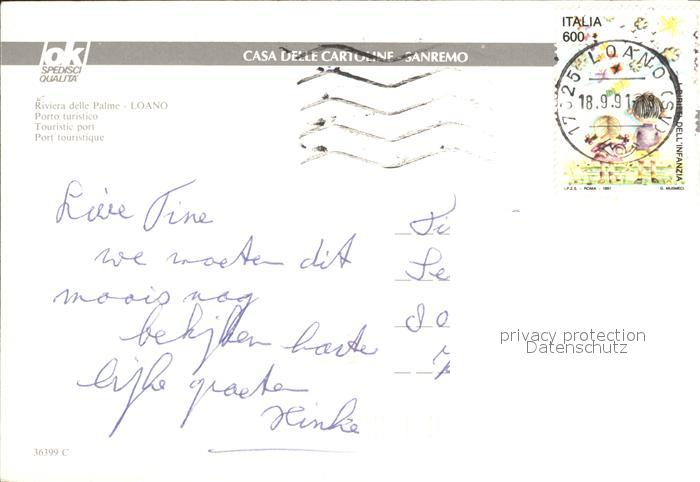 ok
SPEDISCI
QUALITA'
CASA DELLE CARTOLINE - SANREMO
Riviera delle Palme - LOANO
Porto turistico
Touristic port
Port touristique
ITALIA
600
I DIRITTI DELL'INFANZIA
I.P.Z.S. - ROMA - 1991
G. MUSMECI
17025 LOANO (SV)
18.9.91-18
Lieve Tine
we moeten dit
moois nog
bekijken harte
lijke groeten
Hinke
Ti
Se
privacy protection
Datenschutz
36399 C